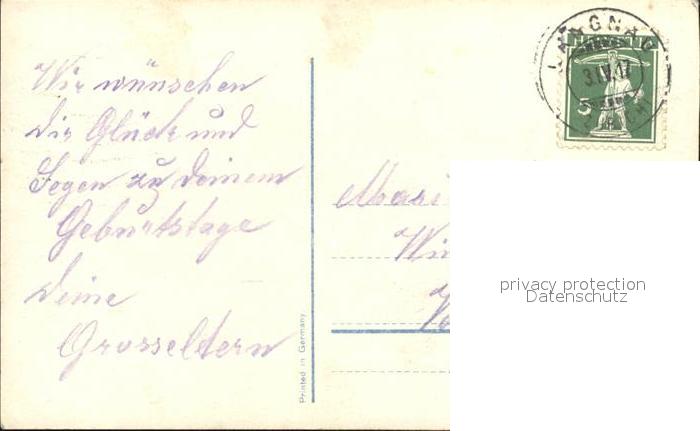 Wir wünschen
dir Glück und
Segen zu deinem
Geburtstage
deine
Grosseltern
Printed in Germany
LANGNAU
3.IV.17
5
privacy protection
Datenschutz